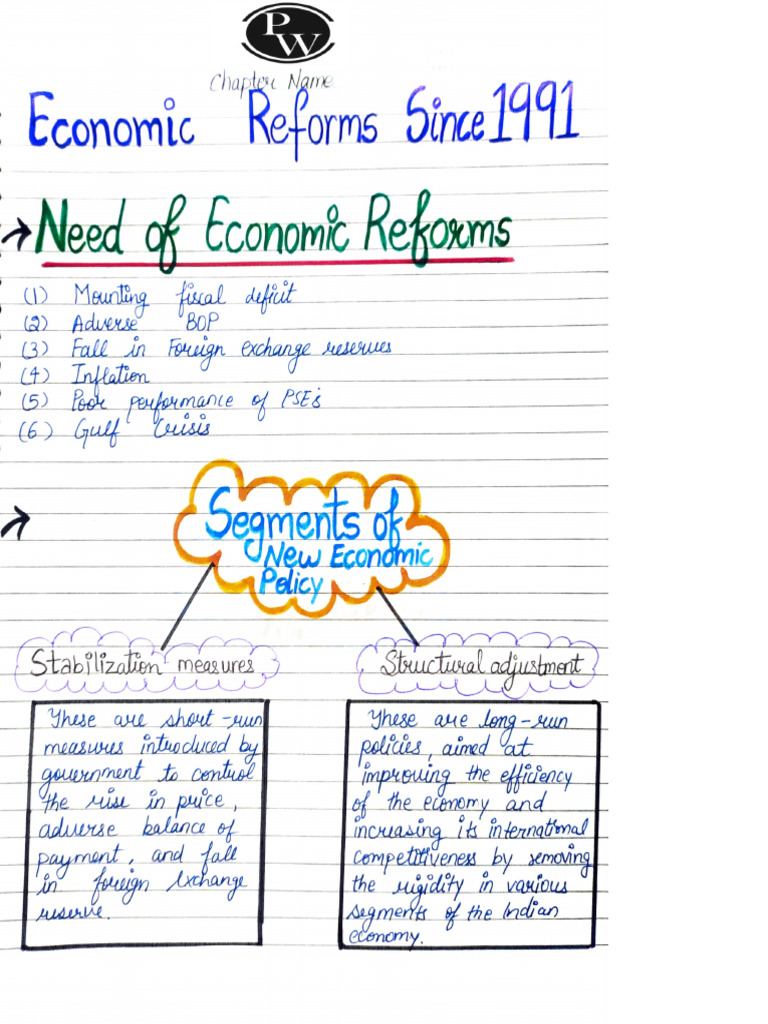 PW
Chapter Name
Economic Reforms Since 1991
→ Need of Economic Reforms
(1) Mounting fiscal deficit
(2) Adverse BOP
(3) Fall in Foreign exchange reserves
(4) Inflation
(5) Poor performance of PSEs
(6) Gulf Crisis
→ Segments of
New Economic
Policy
Stabilization measures
These are short-run
measures introduced by
government to control
the rise in price,
adverse balance of
payment, and fall
in foreign exchange
reserve.
Structural adjustment
These are long-run
policies, aimed at
improving the efficiency
of the economy and
increasing its international
competitiveness by removing
the rigidity in various
segments of the Indian
economy.